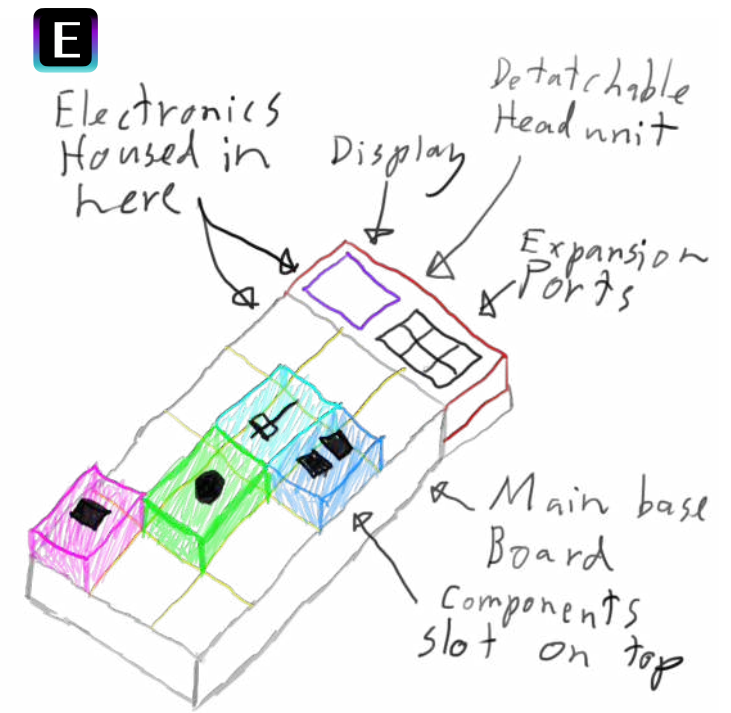 E
Electronics
Housed in
here
Display
Detatchable
Head unit
Expansion
Ports
Main base
Board
Components
slot on top